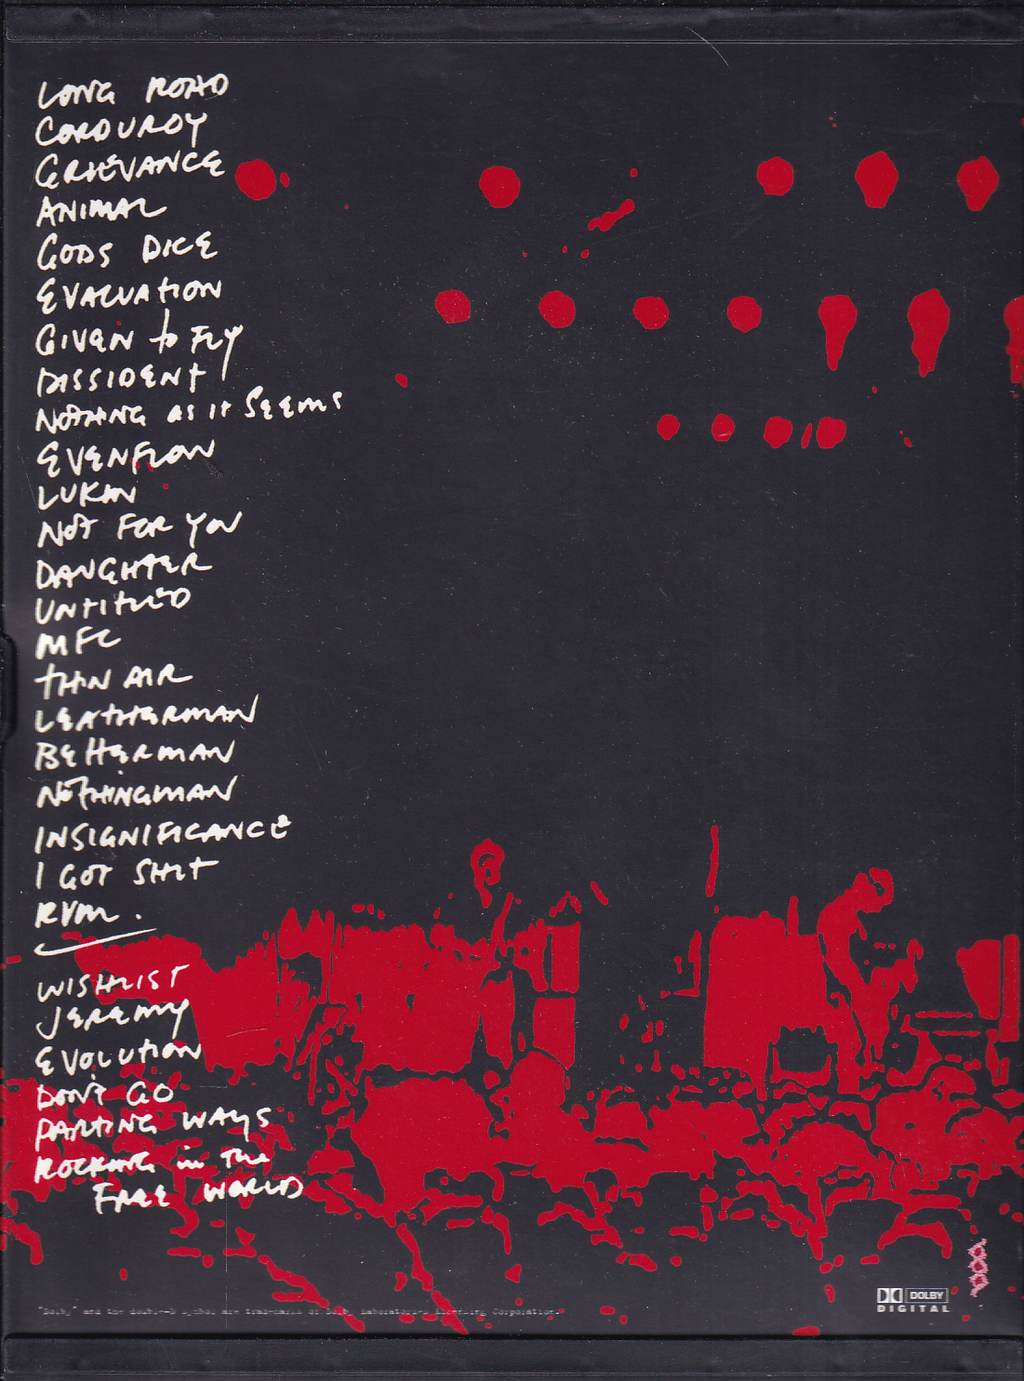 LONG ROAD
CORDUROY
GRIEVANCE
ANIMAL
GODS DICE
EVACUATION
GIVEN to FLY
DISSIDENT
NOTHING AS IT SEEMS
EVENFLOW
LUKIN
NOT FOR YOU
DAUGHTER
UNTITLED
MFC
THIN AIR
LEATHERMAN
BETTERMAN
NOTHINGMAN
INSIGNIFICANCE
I GOT SHIT
RVM.
WISHLIST
JEREMY
EVOLUTION
DON'T GO
PARTING WAYS
ROCKING in the
FREE WORLD
DOLBY
DIGITAL
"Dolby" and the double-D symbol are trademarks of Dolby Laboratories Licensing Corporation.